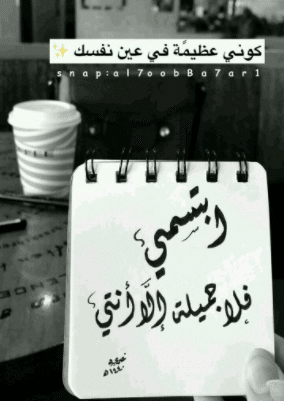 كوني عظيمًة في عين نفسك ✨
snap:al7oobBa7ar1
ابتسمي
فلا جميلة إلَّا أنتي